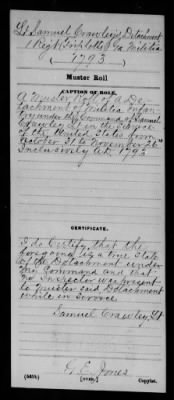 Lt Samuel Crawley's Detachment
1 Regt Triplett's Va Militia
1793
Muster Roll
CAPTION OF ROLL.
A Muster Roll of a De
tachment of Militia Infan
try under the Command of Samuel
Crawley Lt in the Service
of the United States from
October 31 to November 26th
Inclusively A.D. 1793
CERTIFICATE.
I do Certify that the
foregoing is a True State
of the Detachment under
my Command and that
no Inspector was present
to Muster said Detachment
while in Service
Samuel Crawley Lt
G. E. Jones
Copyist.